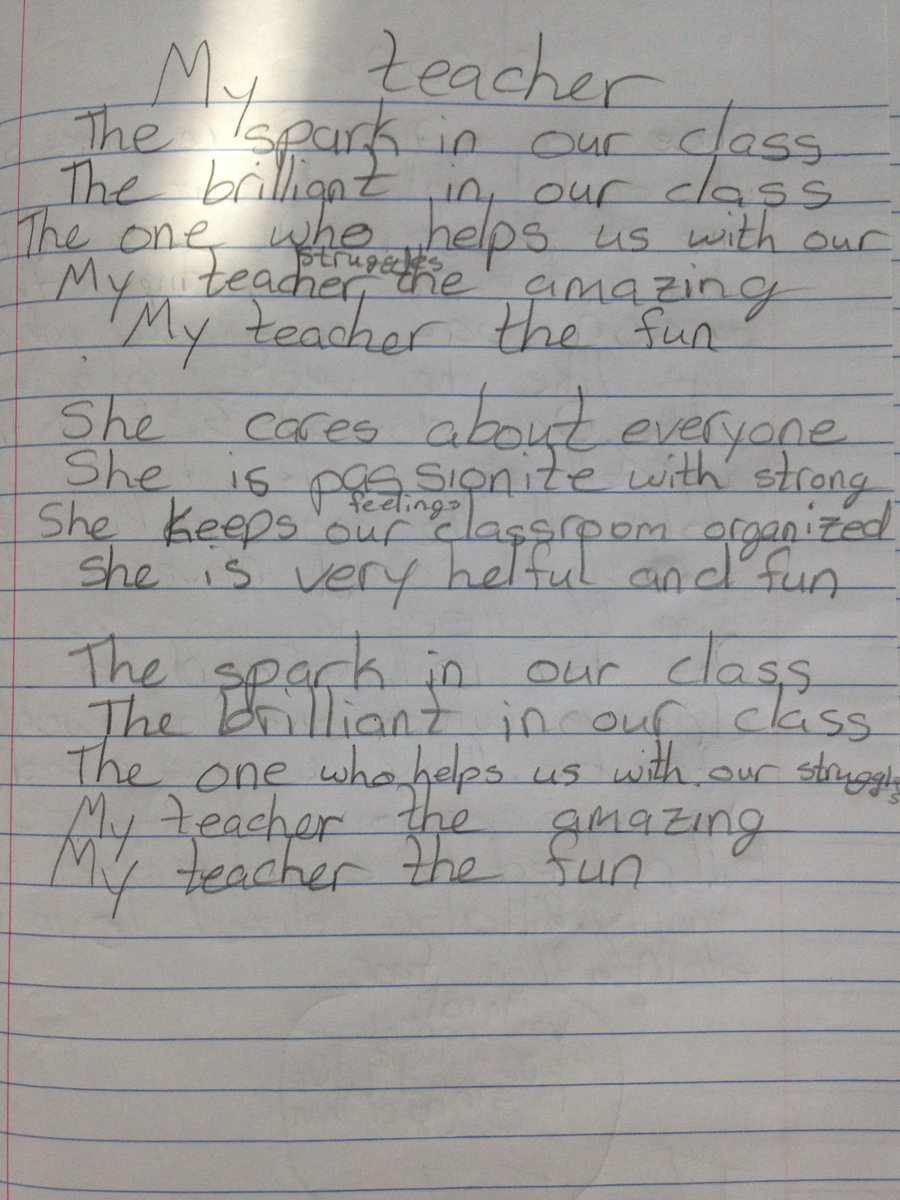 My teacher
The spark in our class
The brilliant in our class
The one who helps us with our
struggles
My teacher the amazing
My teacher the fun
She cares about everyone
She is passionite with strong
feelings
She keeps our classroom organized
She is very helful and fun
The spark in our class
The brilliant in our class
The one who helps us with our struggles
My teacher the amazing
My teacher the fun